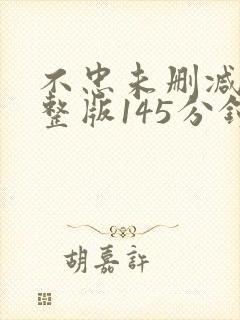 不忠未删减
整版145分钟
胡嘉許